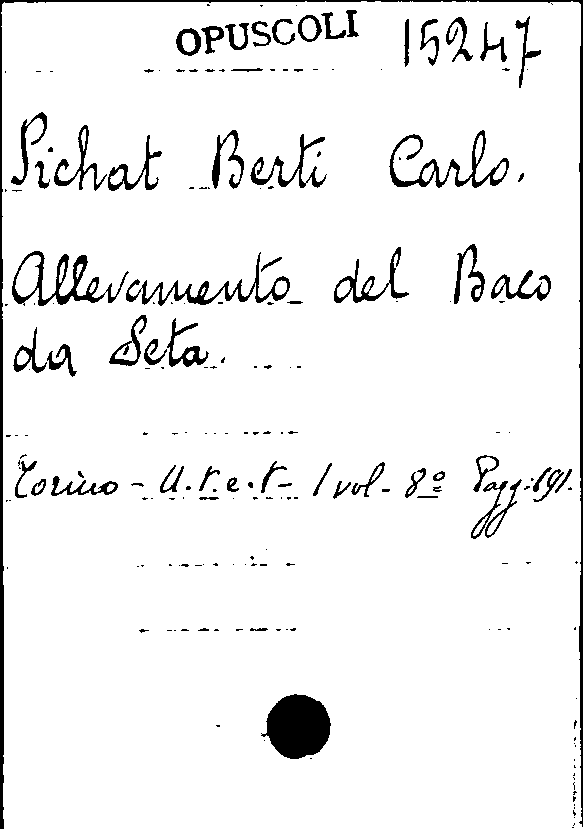 OPUSCOLI 15247
Pichat Berti Carlo.
Allevamento del Baco
da Seta.
Torino - U.t.e.t - 1 vol - 8º Pagg. 191.